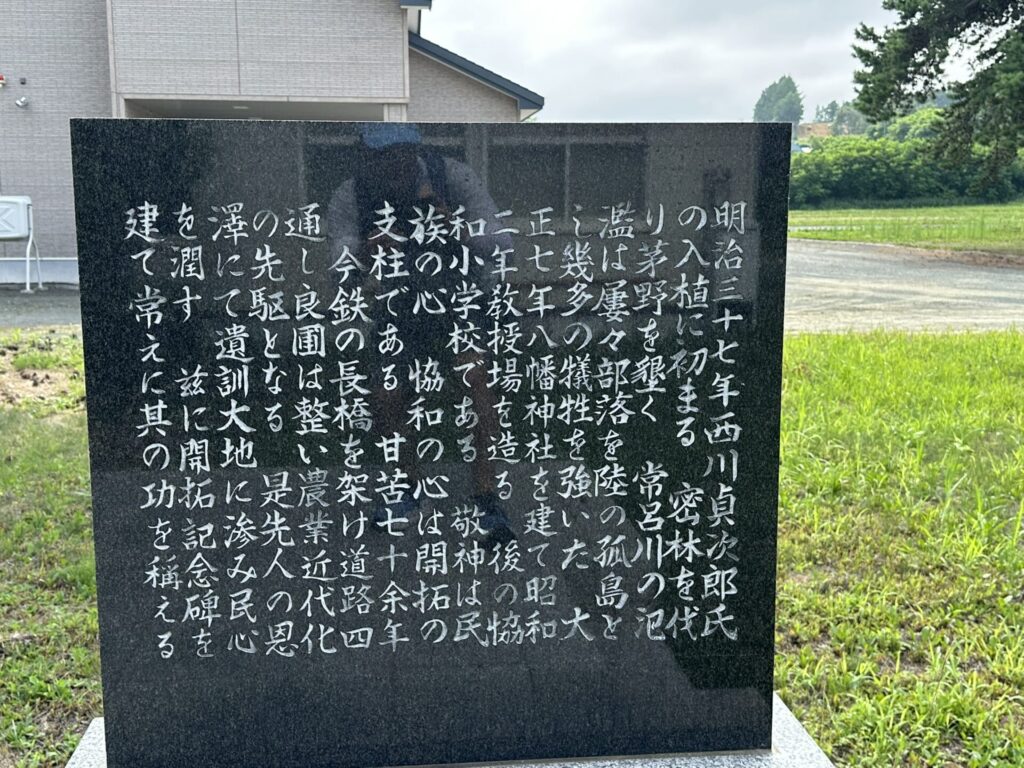 明治三十七年西川貞次郎氏
の入植に初まる　密林を伐
り茅野を墾く　常呂川の氾
濫は屢々部落を陸の孤島と
し幾多の犠牲を強いた　大
正七年八幡神社を建て昭和
二年教授場を造る　後の協
和小学校である　敬神は民
族の心　協和の心は開拓の
支柱である　甘苦七十余年
今鉄の長橋を架け道路四
通し良圃は整い農業近代化
の先駆となる　是先人の恩
澤にて遺訓大地に滲み民心
を潤す　茲に開拓記念碑を
建て常えに其の功を稱える